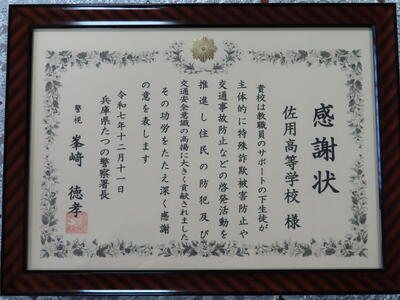 感謝状
佐用高等学校 様
貴校は教職員のサポートの下生徒が
主体的に特殊詐欺被害防止や
交通事故防止などの啓発活動を
推進し住民の防犯及び
交通安全意識の高揚に大きく貢献されました
その功労をたたえ深く感謝
の意を表します
令和七年十二月十一日
兵庫県たつの警察署長
警視 峯﨑 徳孝